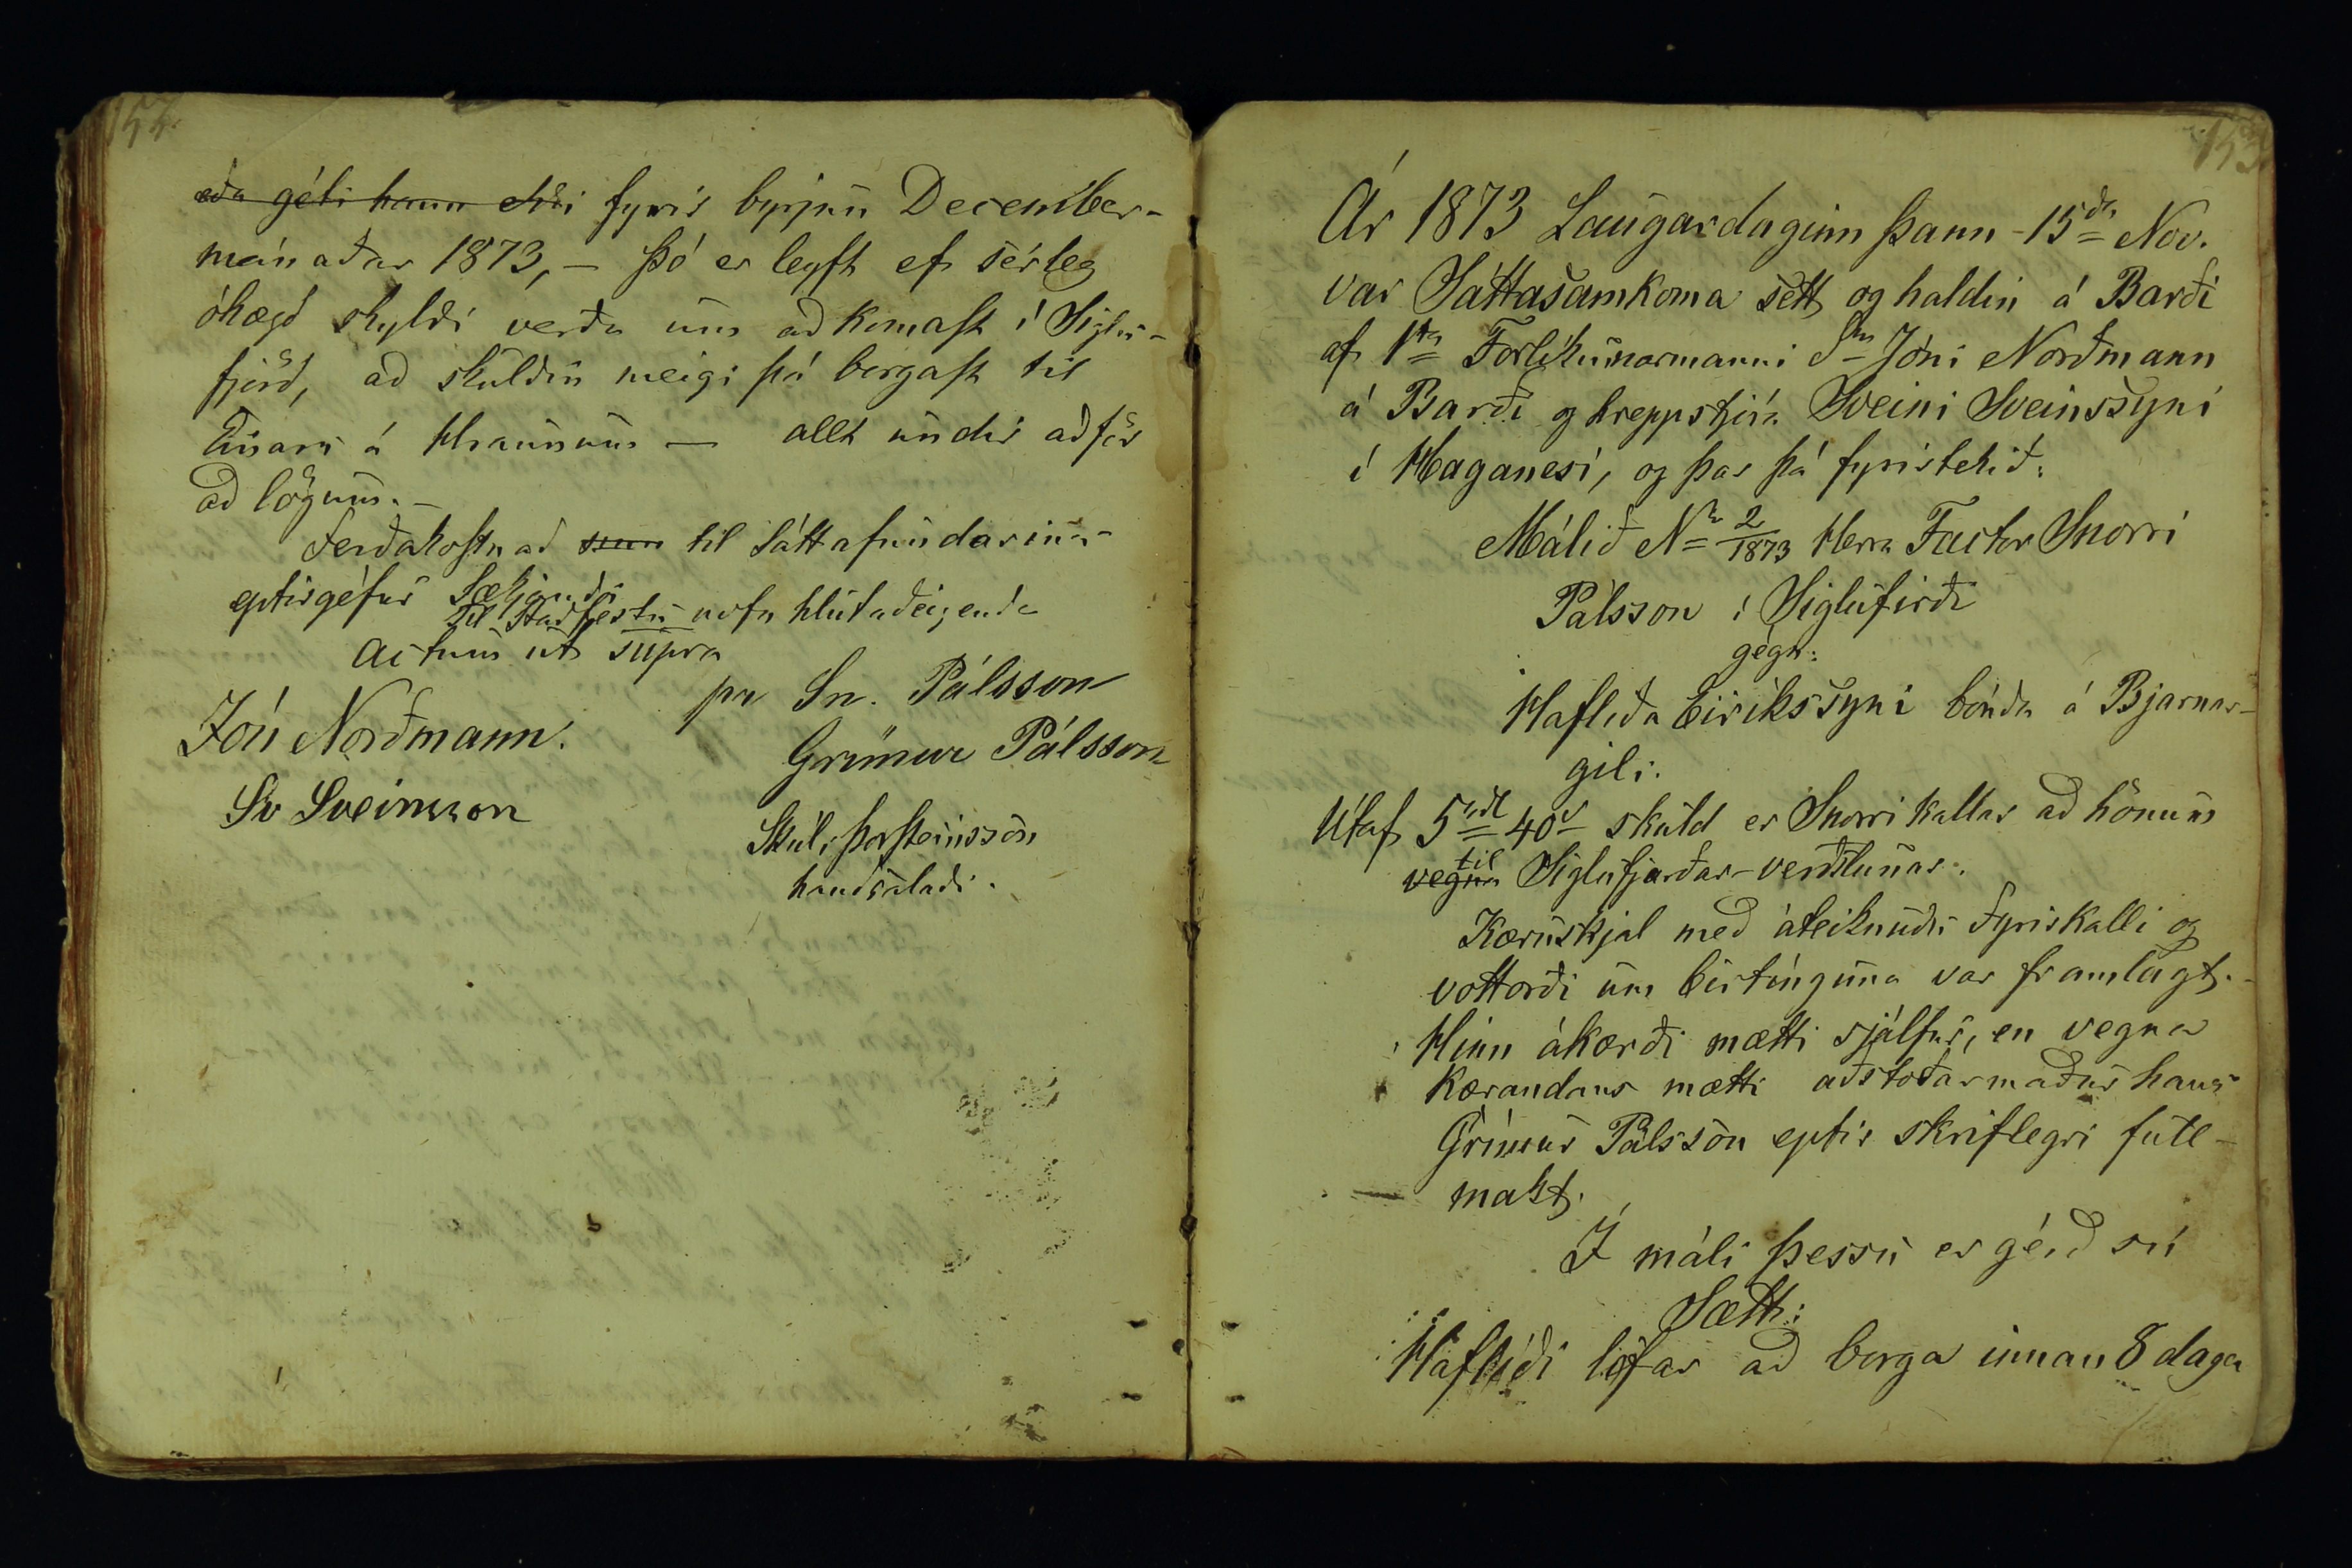 152.
eða géti hann ekki fyrir byrjun December-
mánaðar 1873, — Þó er leyft ef sérleg
óhægð skyldi verða um að komast í Siglu-
fjörð, að skuldin meigi þá borgast til
Einars á Hraunum — allt undir aðför
að lögum. —
Ferðakostnað til sáttafundarins
eptirgéfur Sækjandi
til staðfestu nöfn hlutaðeigenda
Actum ut supra
pr Sn. Pálsson
Jón Norðmann.
Grímur Pálsson
Sv Sveinsson
Skúli Þorsteinsson
handsalaði.
153
Ár 1873 Laugardaginn þann 15da Nov.
var Sáttasamkoma sett og haldin á Barði
af 1ta Forlíkunarmanni Sra Jóni Norðmann
á Barði og hreppstjóra Sveini Sveinssyni
í Haganesi, og þar þá fyrirtekið:
Málið No 2/1873 Herra Factor Snorri
Pálsson í Siglufirði
gégn:
Hafliða Eiríkssyni bónda á Bjarnar-
gili.
Útaf 5rdl 40s skuld er Snorri kallar að hönum
til
vegna Siglufjarðar-verslunar.
Kæruskjal með áteiknuðu Fyrirkalli og
vottorði um birtínguna var framlagt. -
Hinn ákærði mætti sjálfur, en vegna
Kærandans mætti aðstoðarmaður hans
Grímur Pálsson eptir skriflegri full-
makt.
Í máli þessu er gérð sú
Sætt:
Hafliði lofar að borga innan 8 daga